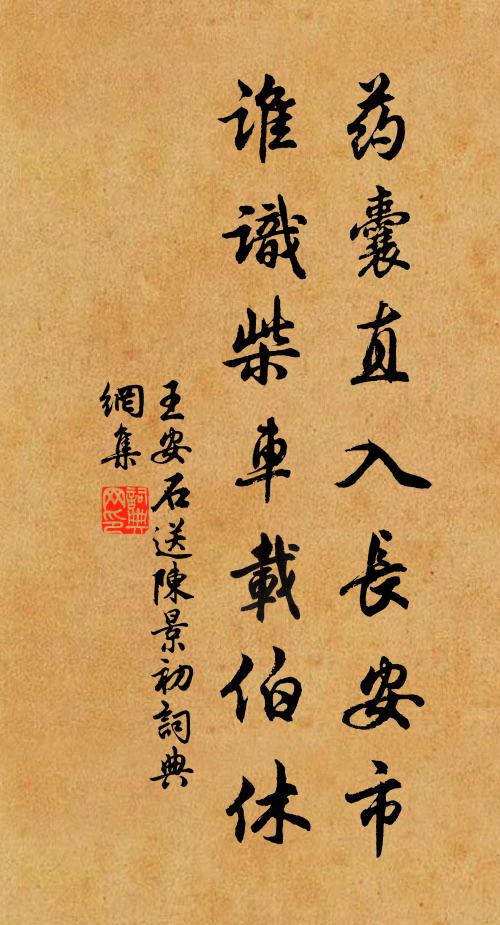 药囊直入長安市
誰識柴車載伯休
王安石送陳景初詞典
網集
詞典网印